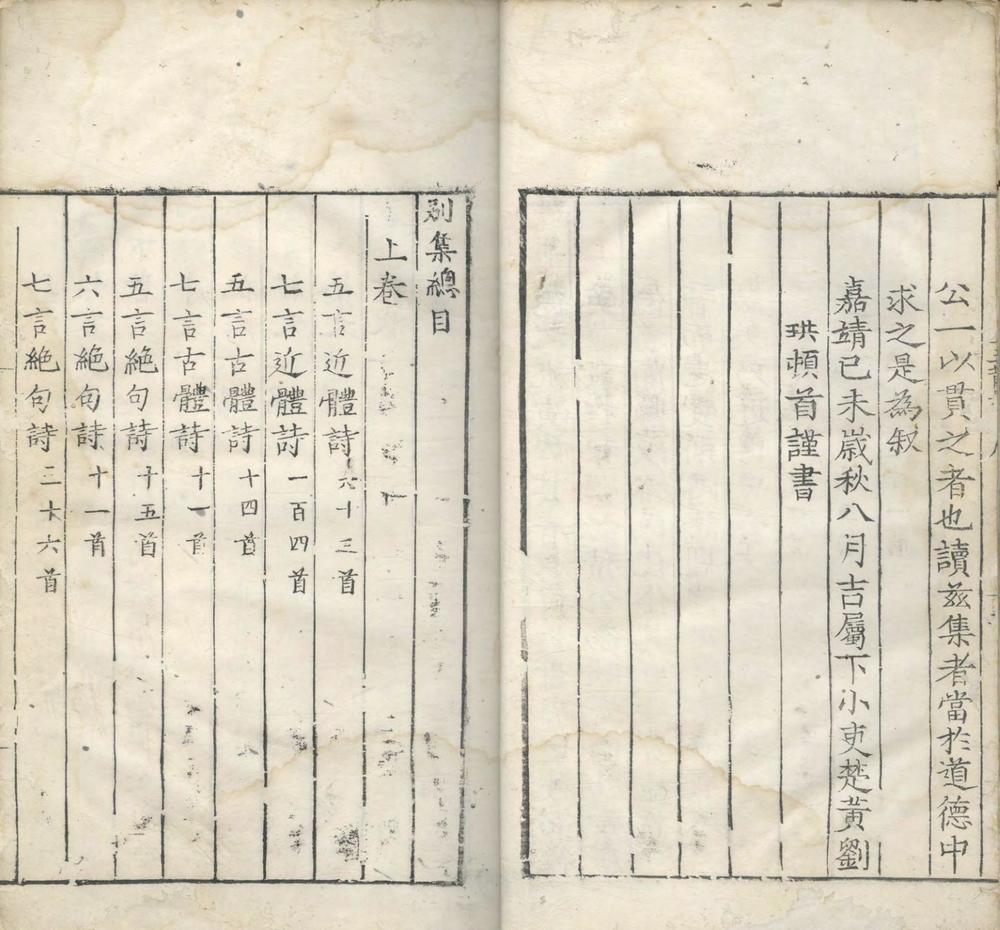 公一以貫之者也讀茲集者當於道德中
求之是為叙
嘉靖己未嵗秋八月吉屬下小吏楚黃劉
珙頓首謹書
別集總目
上卷
五言近體詩六十三首
七言近體詩一百四首
五言古體詩十四首
七言古體詩十一首
五言絶句詩十五首
六言絶句詩十一首
七言絶句詩三十六首